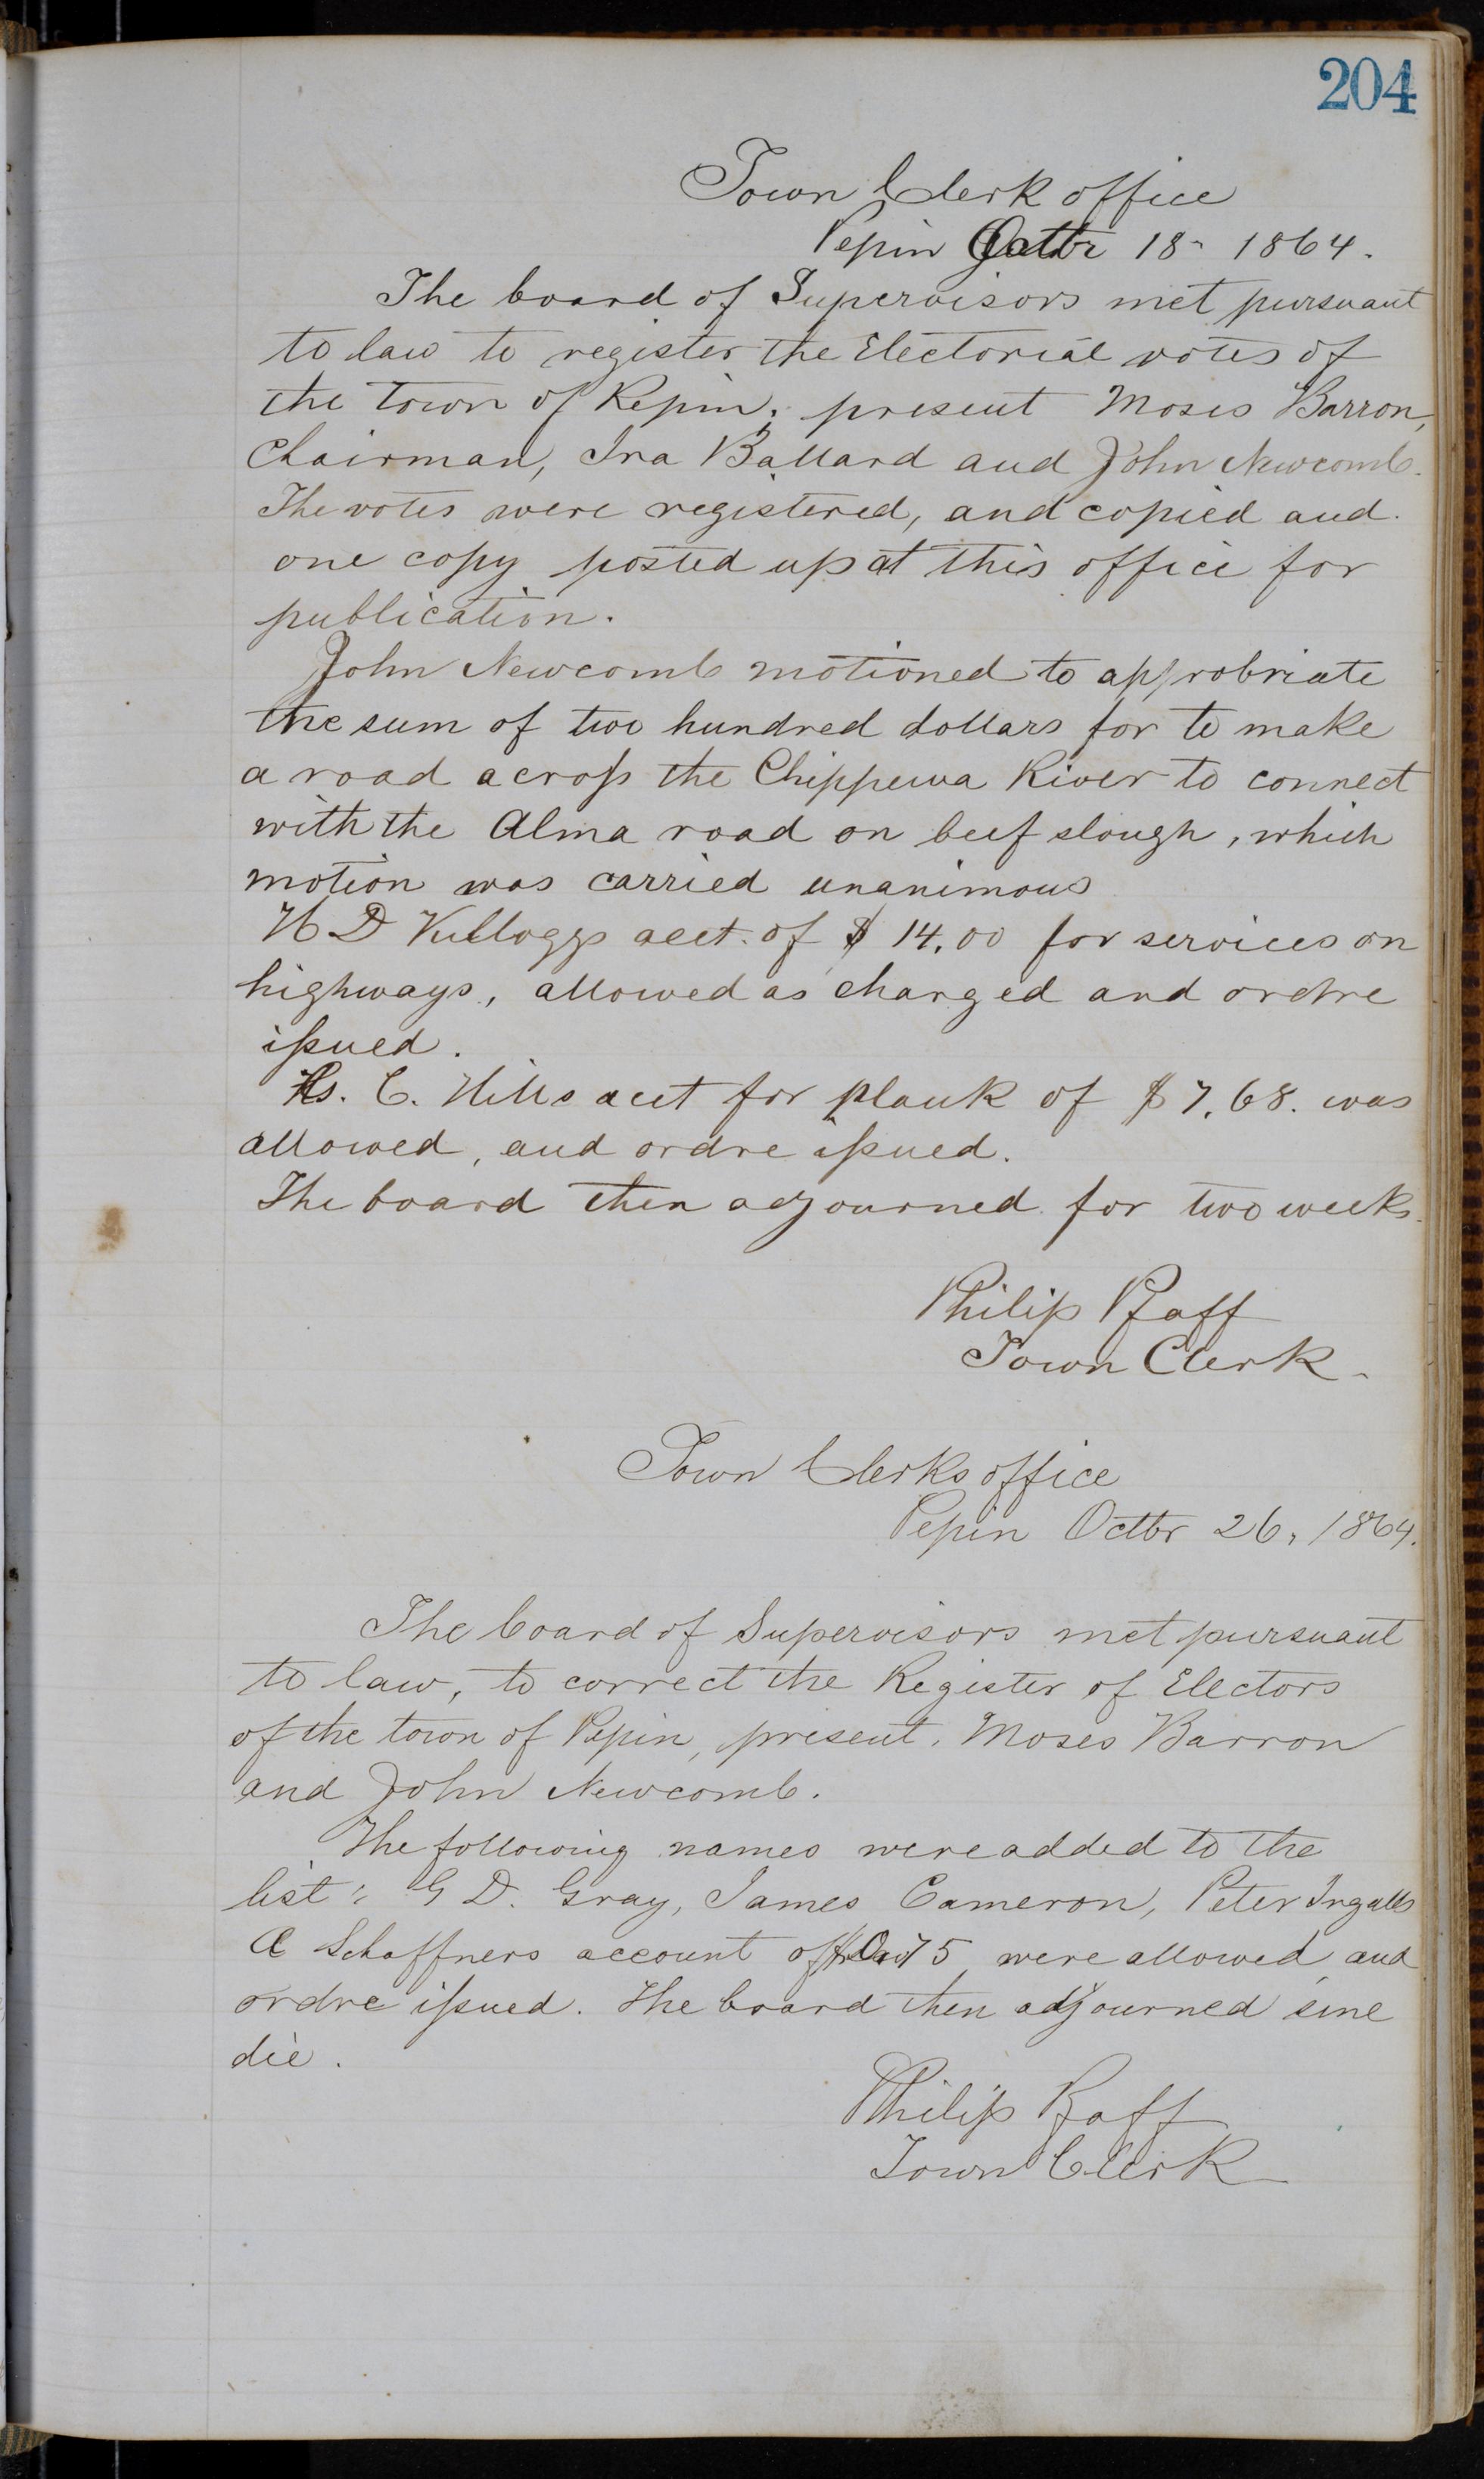 204
Town Clerk office
Pepin Octbr 18 - 1864.
The board of Supervisors met pursuant
to law to register the Electorial votes of
the town of Pepin, present Moses Barron,
Chairman, Ira Ballard and John Newcomb.
The votes were registered, and copied and
one copy posted up at this office for
publication.
John Newcomb motioned to approbriate
the sum of two hundred dollars for to make
a road across the Chippewa River to connect
with the Alma road on beef slough, which
motion was carried unanimous
H D Kelloggs acct. of $ 14.00 for services on
highways, allowed as charged and ordre
issued.
C. Hills acct for plank of $7.68. was
allowed, and ordre issued.
The board then adjourned for two weeks.
Philip Pfaff
Town Clerk.
Town Clerks office
Pepin Octbr 26, 1864.
The board of Supervisors met pursuant
to law, to correct the Register of Electors
of the town of Pepin, present. Moses Barron
and John Newcomb.
The following names were added to the
list: G D. Gray, James Cameron, Peter Ingalls
A Schaffners account of 75 were allowed and
ordre issued. The board then adjourned sine
die.
Philip Pfaff
Town Clerk